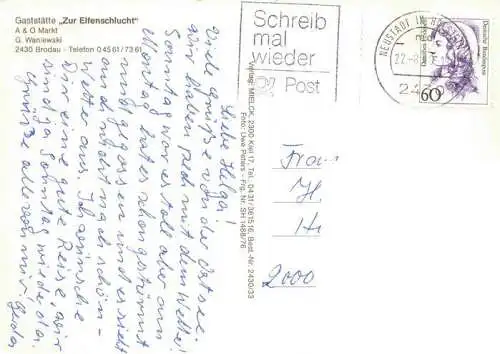 Gaststätte „Zur Elfenschlucht"
A & O Markt
G. Waniewski
2430 Brodau - Telefon 0 45 61 / 73 61
Liebe Helga!
Viele Grüße von der Ostsee.
Wir haben Pech mit dem Wetter!
Sonntag war es toll aber am
Montag hat es schon gestürmt
und gegossen und es sieht
auch nicht nach schön-
Wetter aus. Ich wünsche
Dir eine gute Reise, wir
sind ja Sonntag wieder da.
Grüße alle von mir! Gerda
Verlag: MIELCK, 2300 Kiel 17, Tel. 04 31/361516, Best.-Nr. 2430/33
Foto: Uwe Peters - Frg. Nr. SH 1488/76
Schreib
mal
wieder
Post
NEUSTADT IN HOLSTEIN
22.-8
Deutsche Bundespost
60
Frau
H.
2000